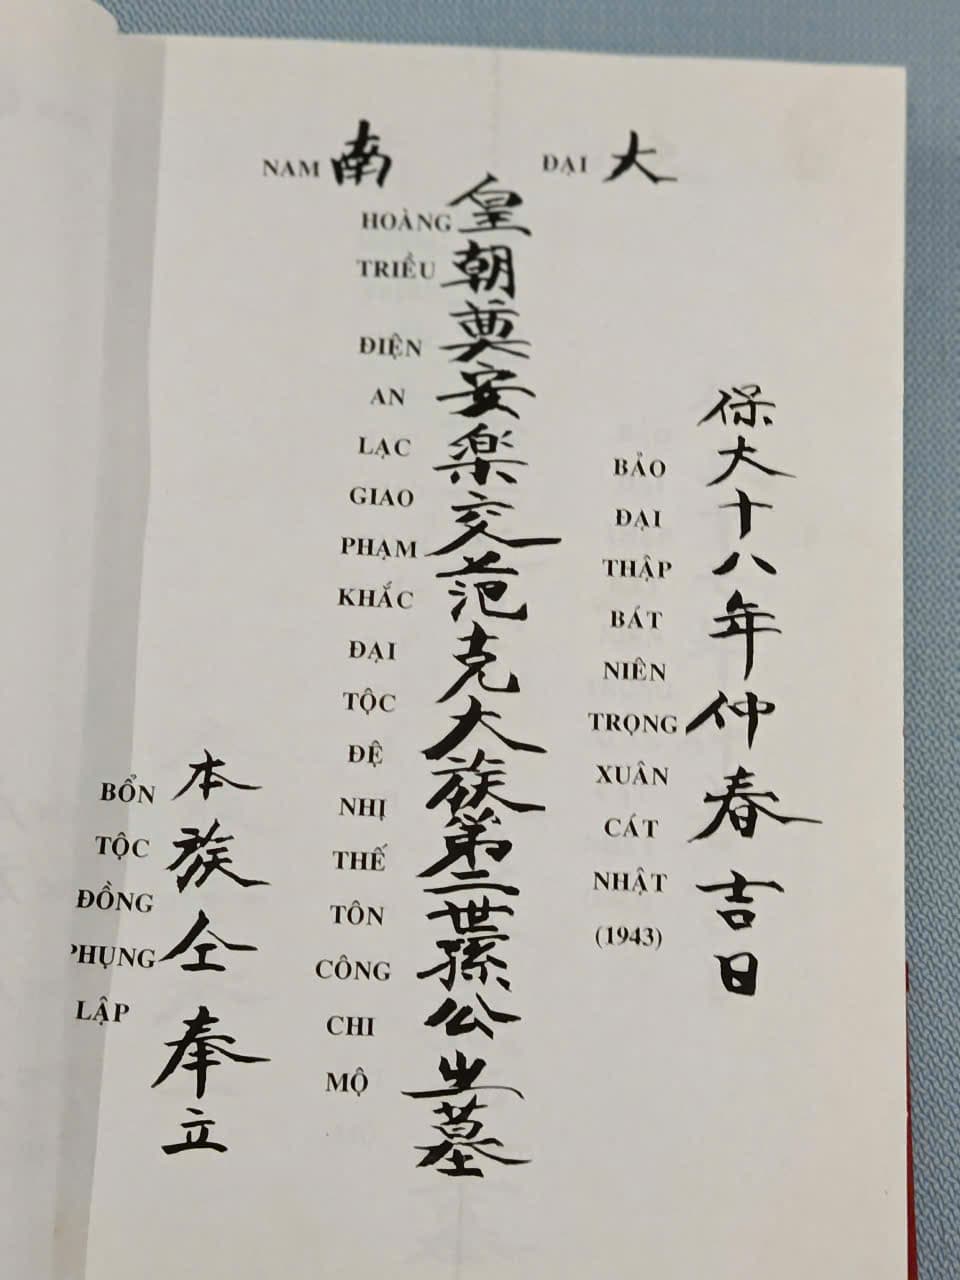 ĐẠI 大
NAM 南
保大十八年仲春吉日
BẢO ĐẠI THẬP BÁT NIÊN TRỌNG XUÂN CÁT NHẬT (1943)
皇朝奠安楽交范克大族第二世孫公之墓
HOÀNG TRIỀU ĐIỆN AN LẠC GIAO PHẠM KHẮC ĐẠI TỘC ĐỆ NHỊ THẾ TÔN CÔNG CHI MỘ
本族仝奉立
BỔN TỘC ĐỒNG PHỤNG LẬP